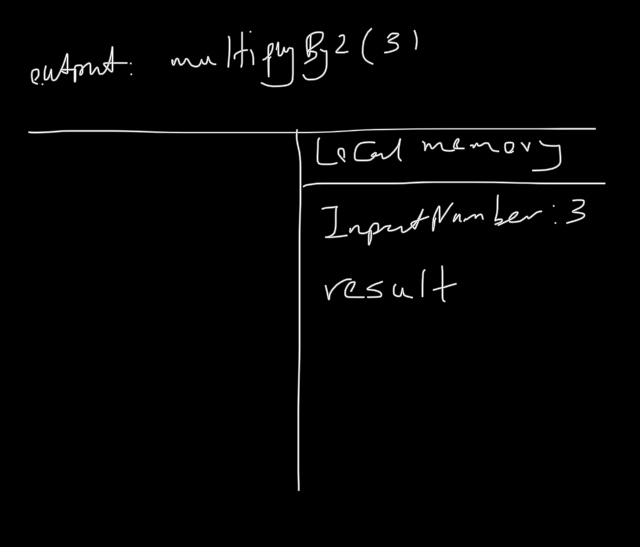 output: multiplyBy2(3)
Local memory
InputNumber: 3
result